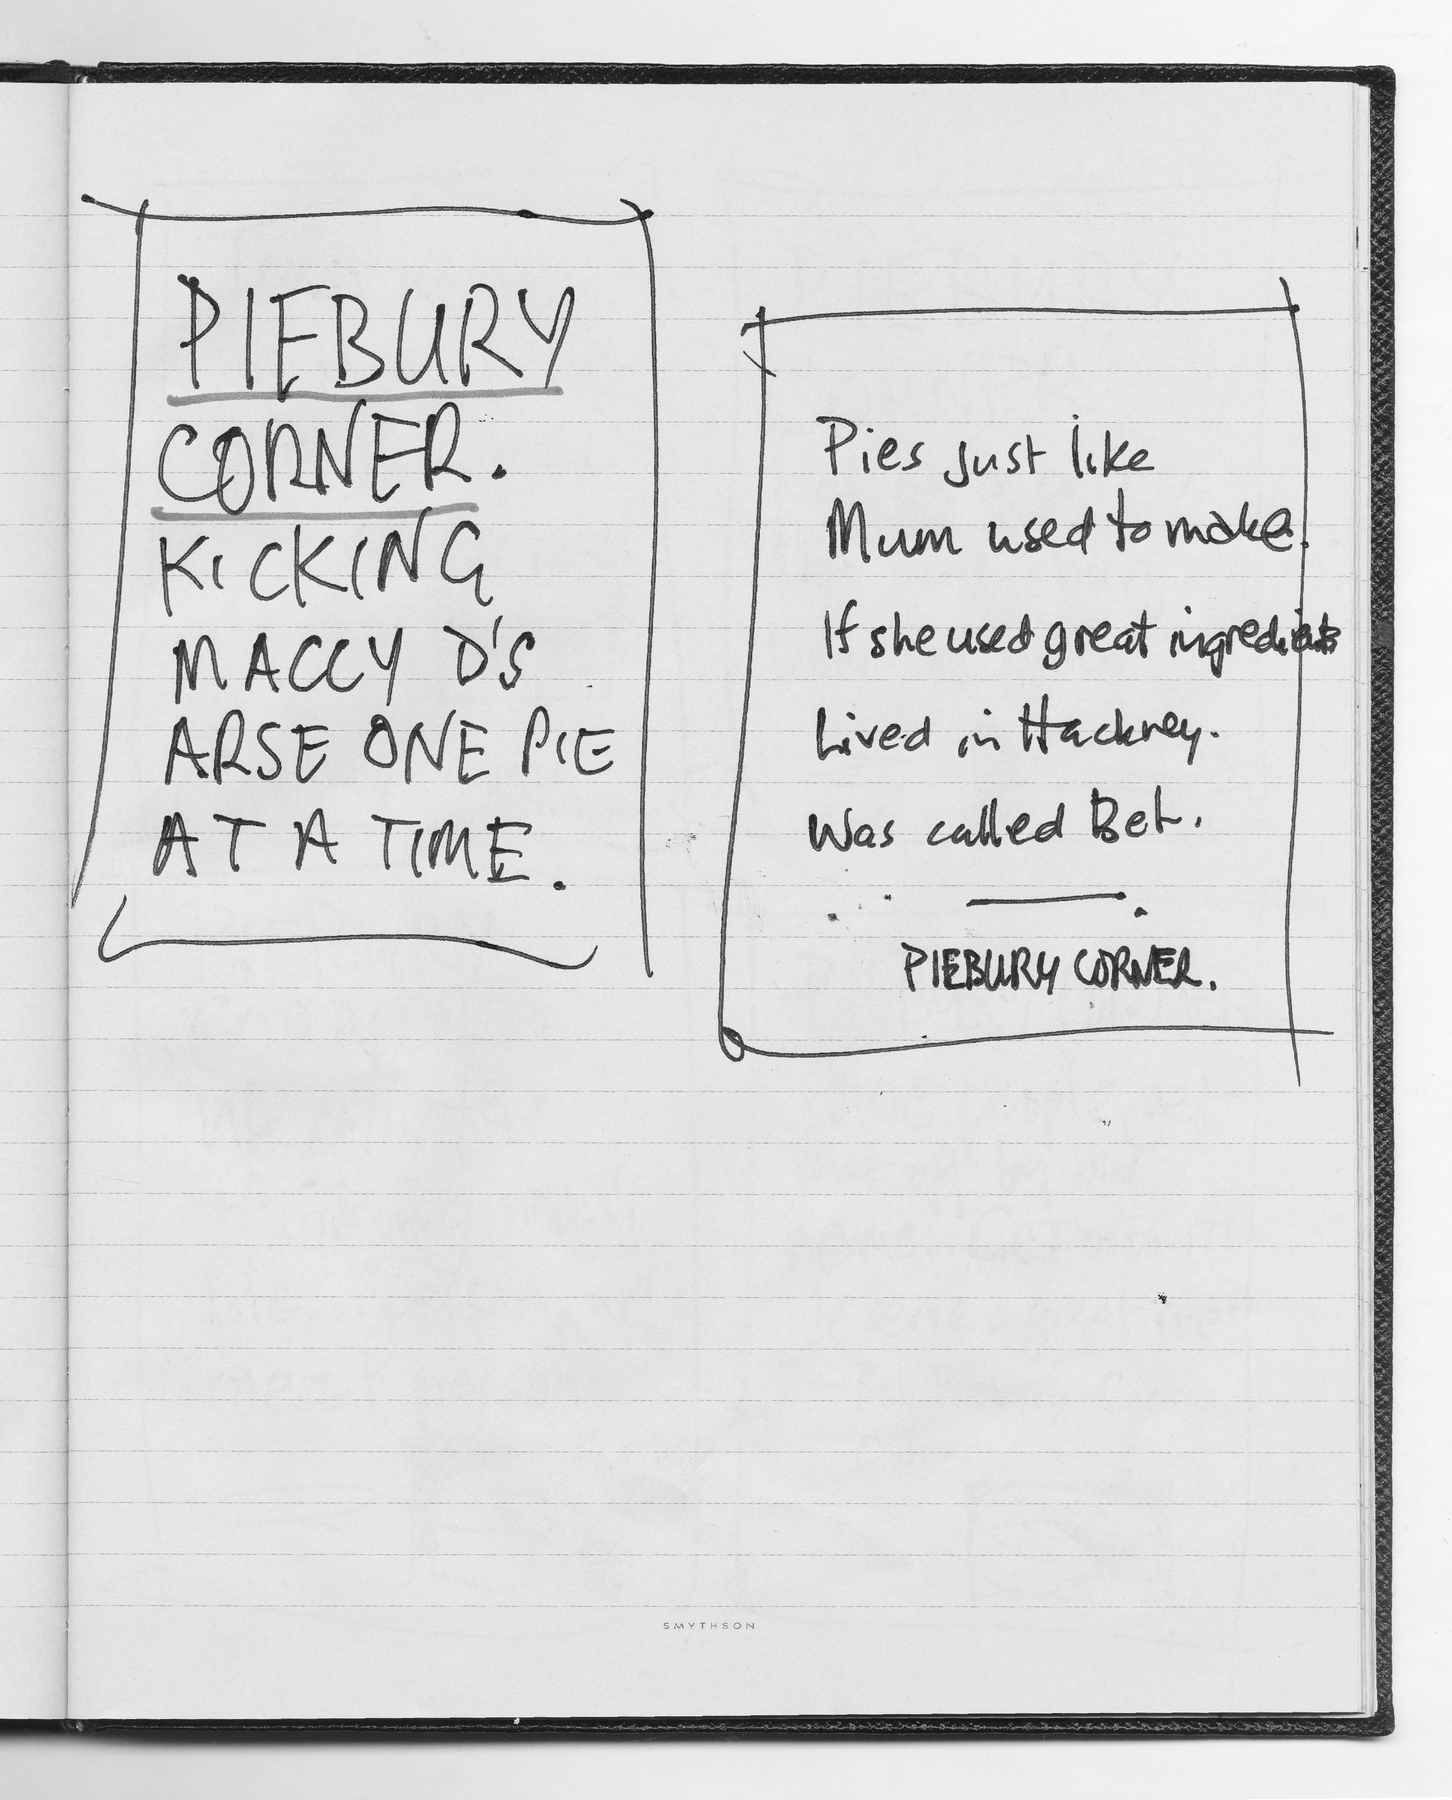 PIEBURY
CORNER.
KICKING
MACCY D'S
ARSE ONE PIE
AT A TIME.
Pies just like
Mum used to make.
If she used great ingredients
Lived in Hackney.
Was called Bet.
PIEBURY CORNER.
SMYTHSON